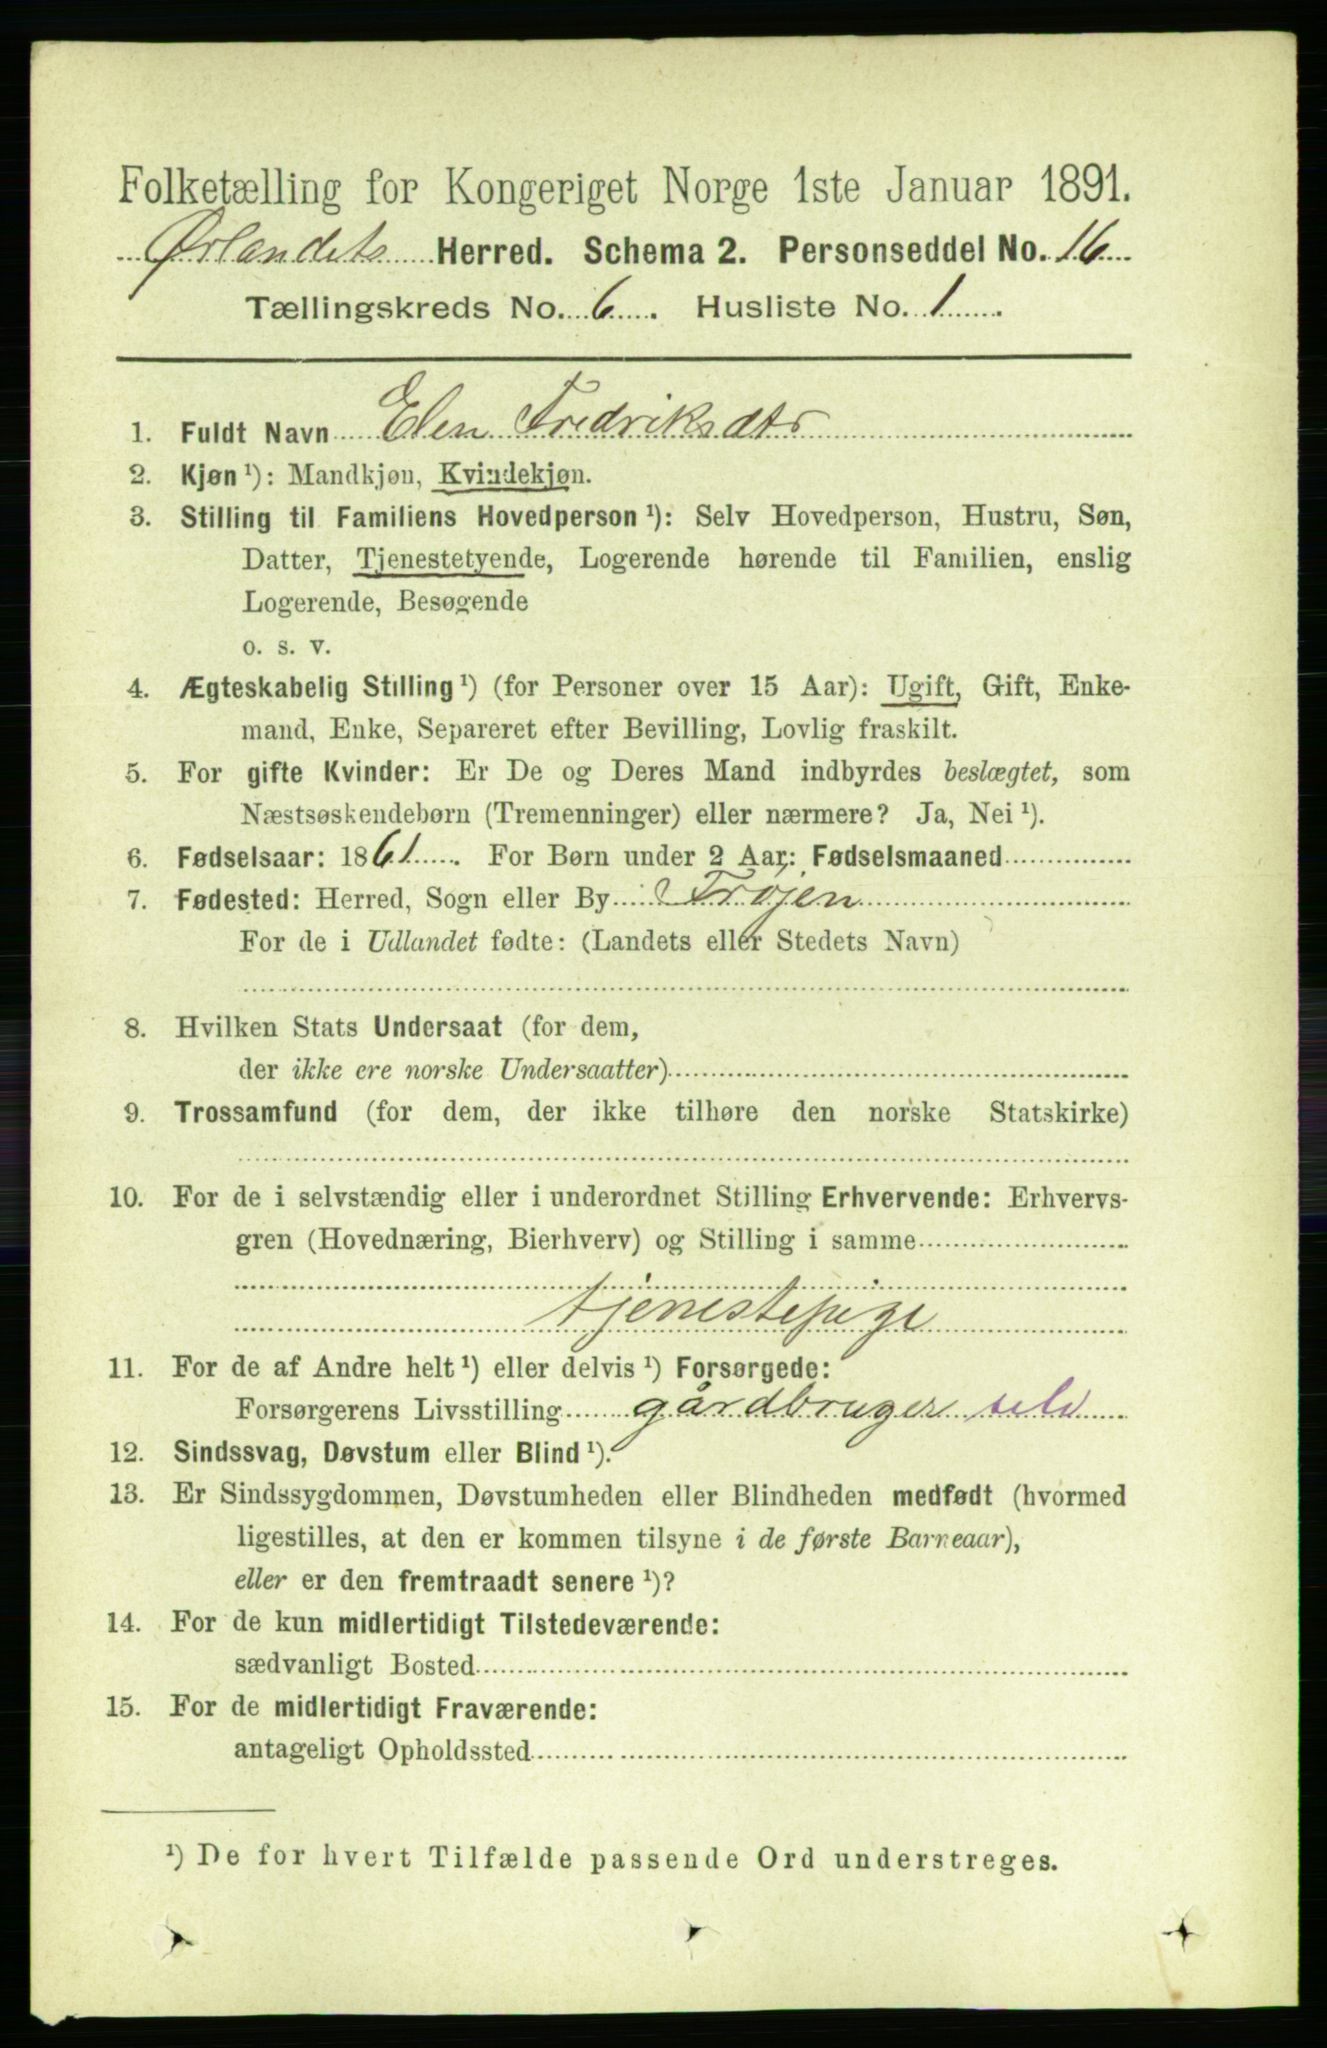 Folketælling for Kongeriget Norge 1ste Januar 1891.
Ørlandets Herred. Schema 2. Personseddel No. 16
Tællingskreds No. 6. Husliste No. 1.
1. Fuldt Navn Elen Fredriksdtr
2. Kjøn ¹): Mandkjøn, Kvindekjøn.
3. Stilling til Familiens Hovedperson ¹): Selv Hovedperson, Hustru, Søn,
Datter, Tjenestetyende, Logerende hørende til Familien, enslig
Logerende, Besøgende
o. s. v.
4. Ægteskabelig Stilling ¹) (for Personer over 15 Aar): Ugift, Gift, Enke-
mand, Enke, Separeret efter Bevilling, Lovlig fraskilt.
5. For gifte Kvinder: Er De og Deres Mand indbyrdes beslægtet, som
Næstsøskendebørn (Tremenninger) eller nærmere? Ja, Nei ¹).
6. Fødselsaar: 1861. For Børn under 2 Aar: Fødselsmaaned
7. Fødested: Herred, Sogn eller By Frøjen
For de i Udlandet fødte: (Landets eller Stedets Navn)
8. Hvilken Stats Undersaat (for dem,
der ikke ere norske Undersaatter)
9. Trossamfund (for dem, der ikke tilhøre den norske Statskirke)
10. For de i selvstændig eller i underordnet Stilling Erhvervende: Erhvervs-
gren (Hovednæring, Bierhverv) og Stilling i samme
tjenestepige
11. For de af Andre helt ¹) eller delvis ¹) Forsørgede:
Forsørgerens Livsstilling gårdbruger selv
12. Sindssvag, Døvstum eller Blind ¹).
13. Er Sindssygdommen, Døvstumheden eller Blindheden medfødt (hvormed
ligestilles, at den er kommen tilsyne i de første Barneaar),
eller er den fremtraadt senere ¹)?
14. For de kun midlertidigt Tilstedeværende:
sædvanligt Bosted
15. For de midlertidigt Fraværende:
antageligt Opholdssted
¹) De for hvert Tilfælde passende Ord understreges.